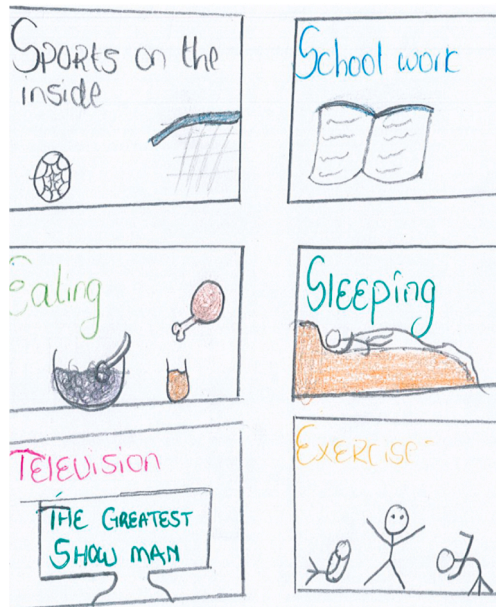 SPORTS on the
inside
School work
Eating
SLEEPING
TELEVISION
THE GREATEST
SHOW MAN
EXERCISE